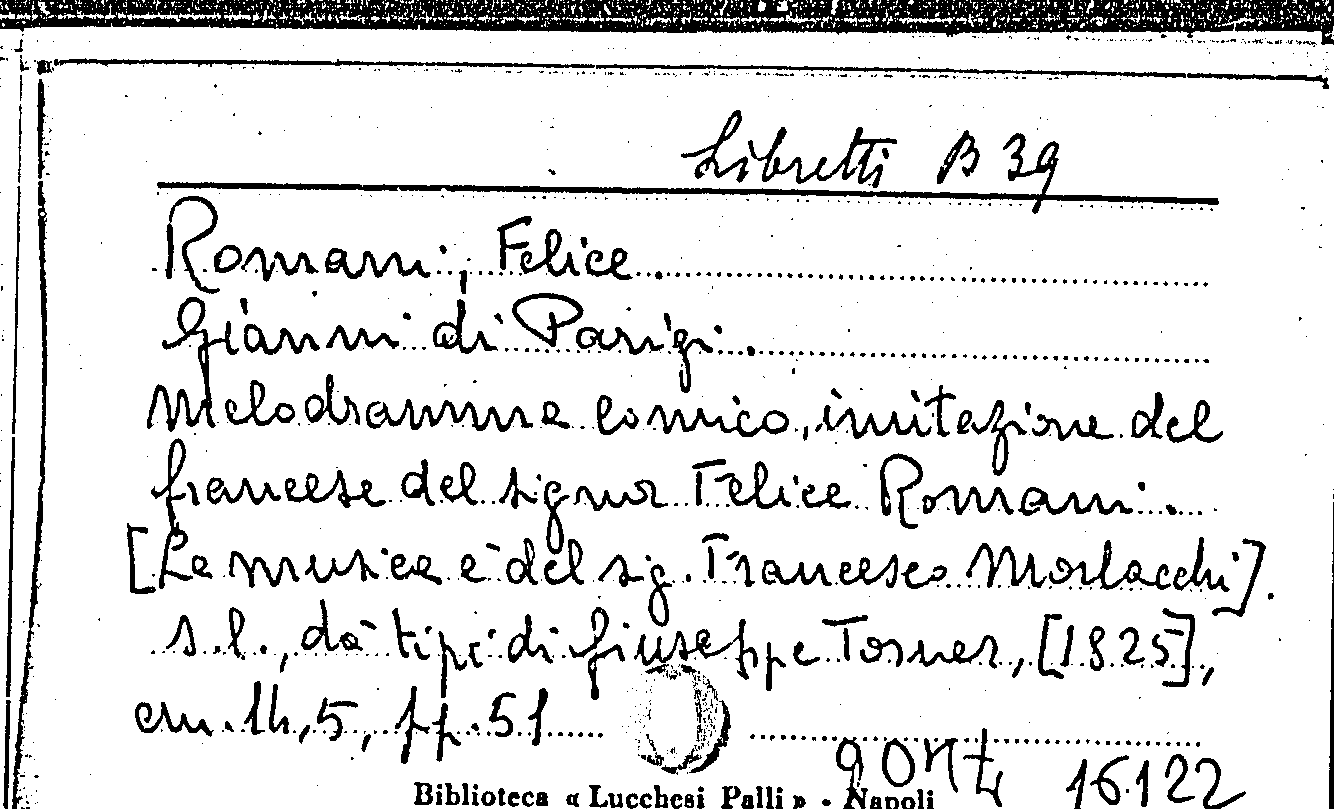 Libretti B 39
Romani, Felice.
Gianni di Parigi.
Melodramma comico, imitazione del
francese del signor Felice Romani.
[La musica è del sig. Francesco Morlacchi].
s.l., da' tipi di Giuseppe Torner, [1825],
cm. 14,5, pp. 51
16.122
Biblioteca « Lucchesi Palli » - Napoli